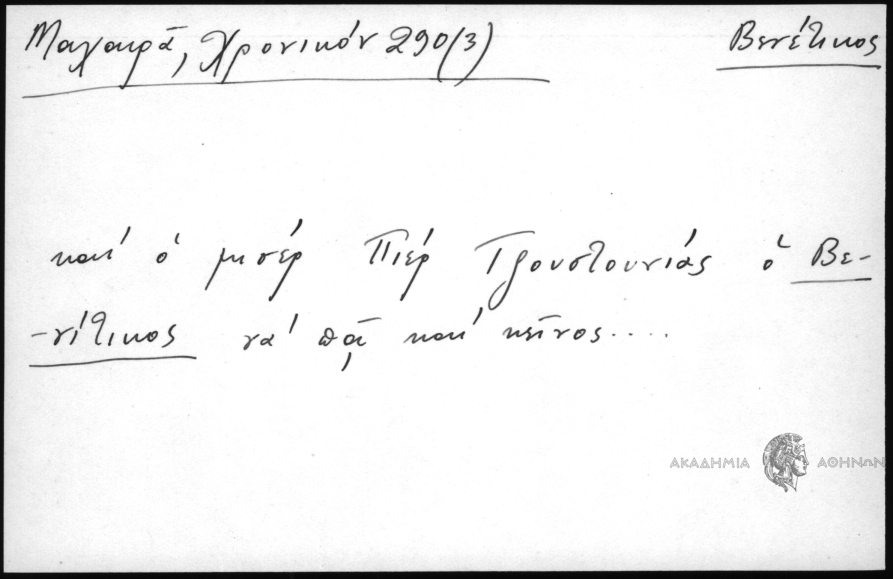 Μαχαιρᾶ, Χρονικόν 290(3)
Βενέτικος
καί ὁ μισέρ Πιέρ Τζουστουνιάς ὁ Βε-
-νίτικος νά πᾷ καί κεῖνος....
ΑΚΑΔΗΜΙΑ ΑΘΗΝΩΝ